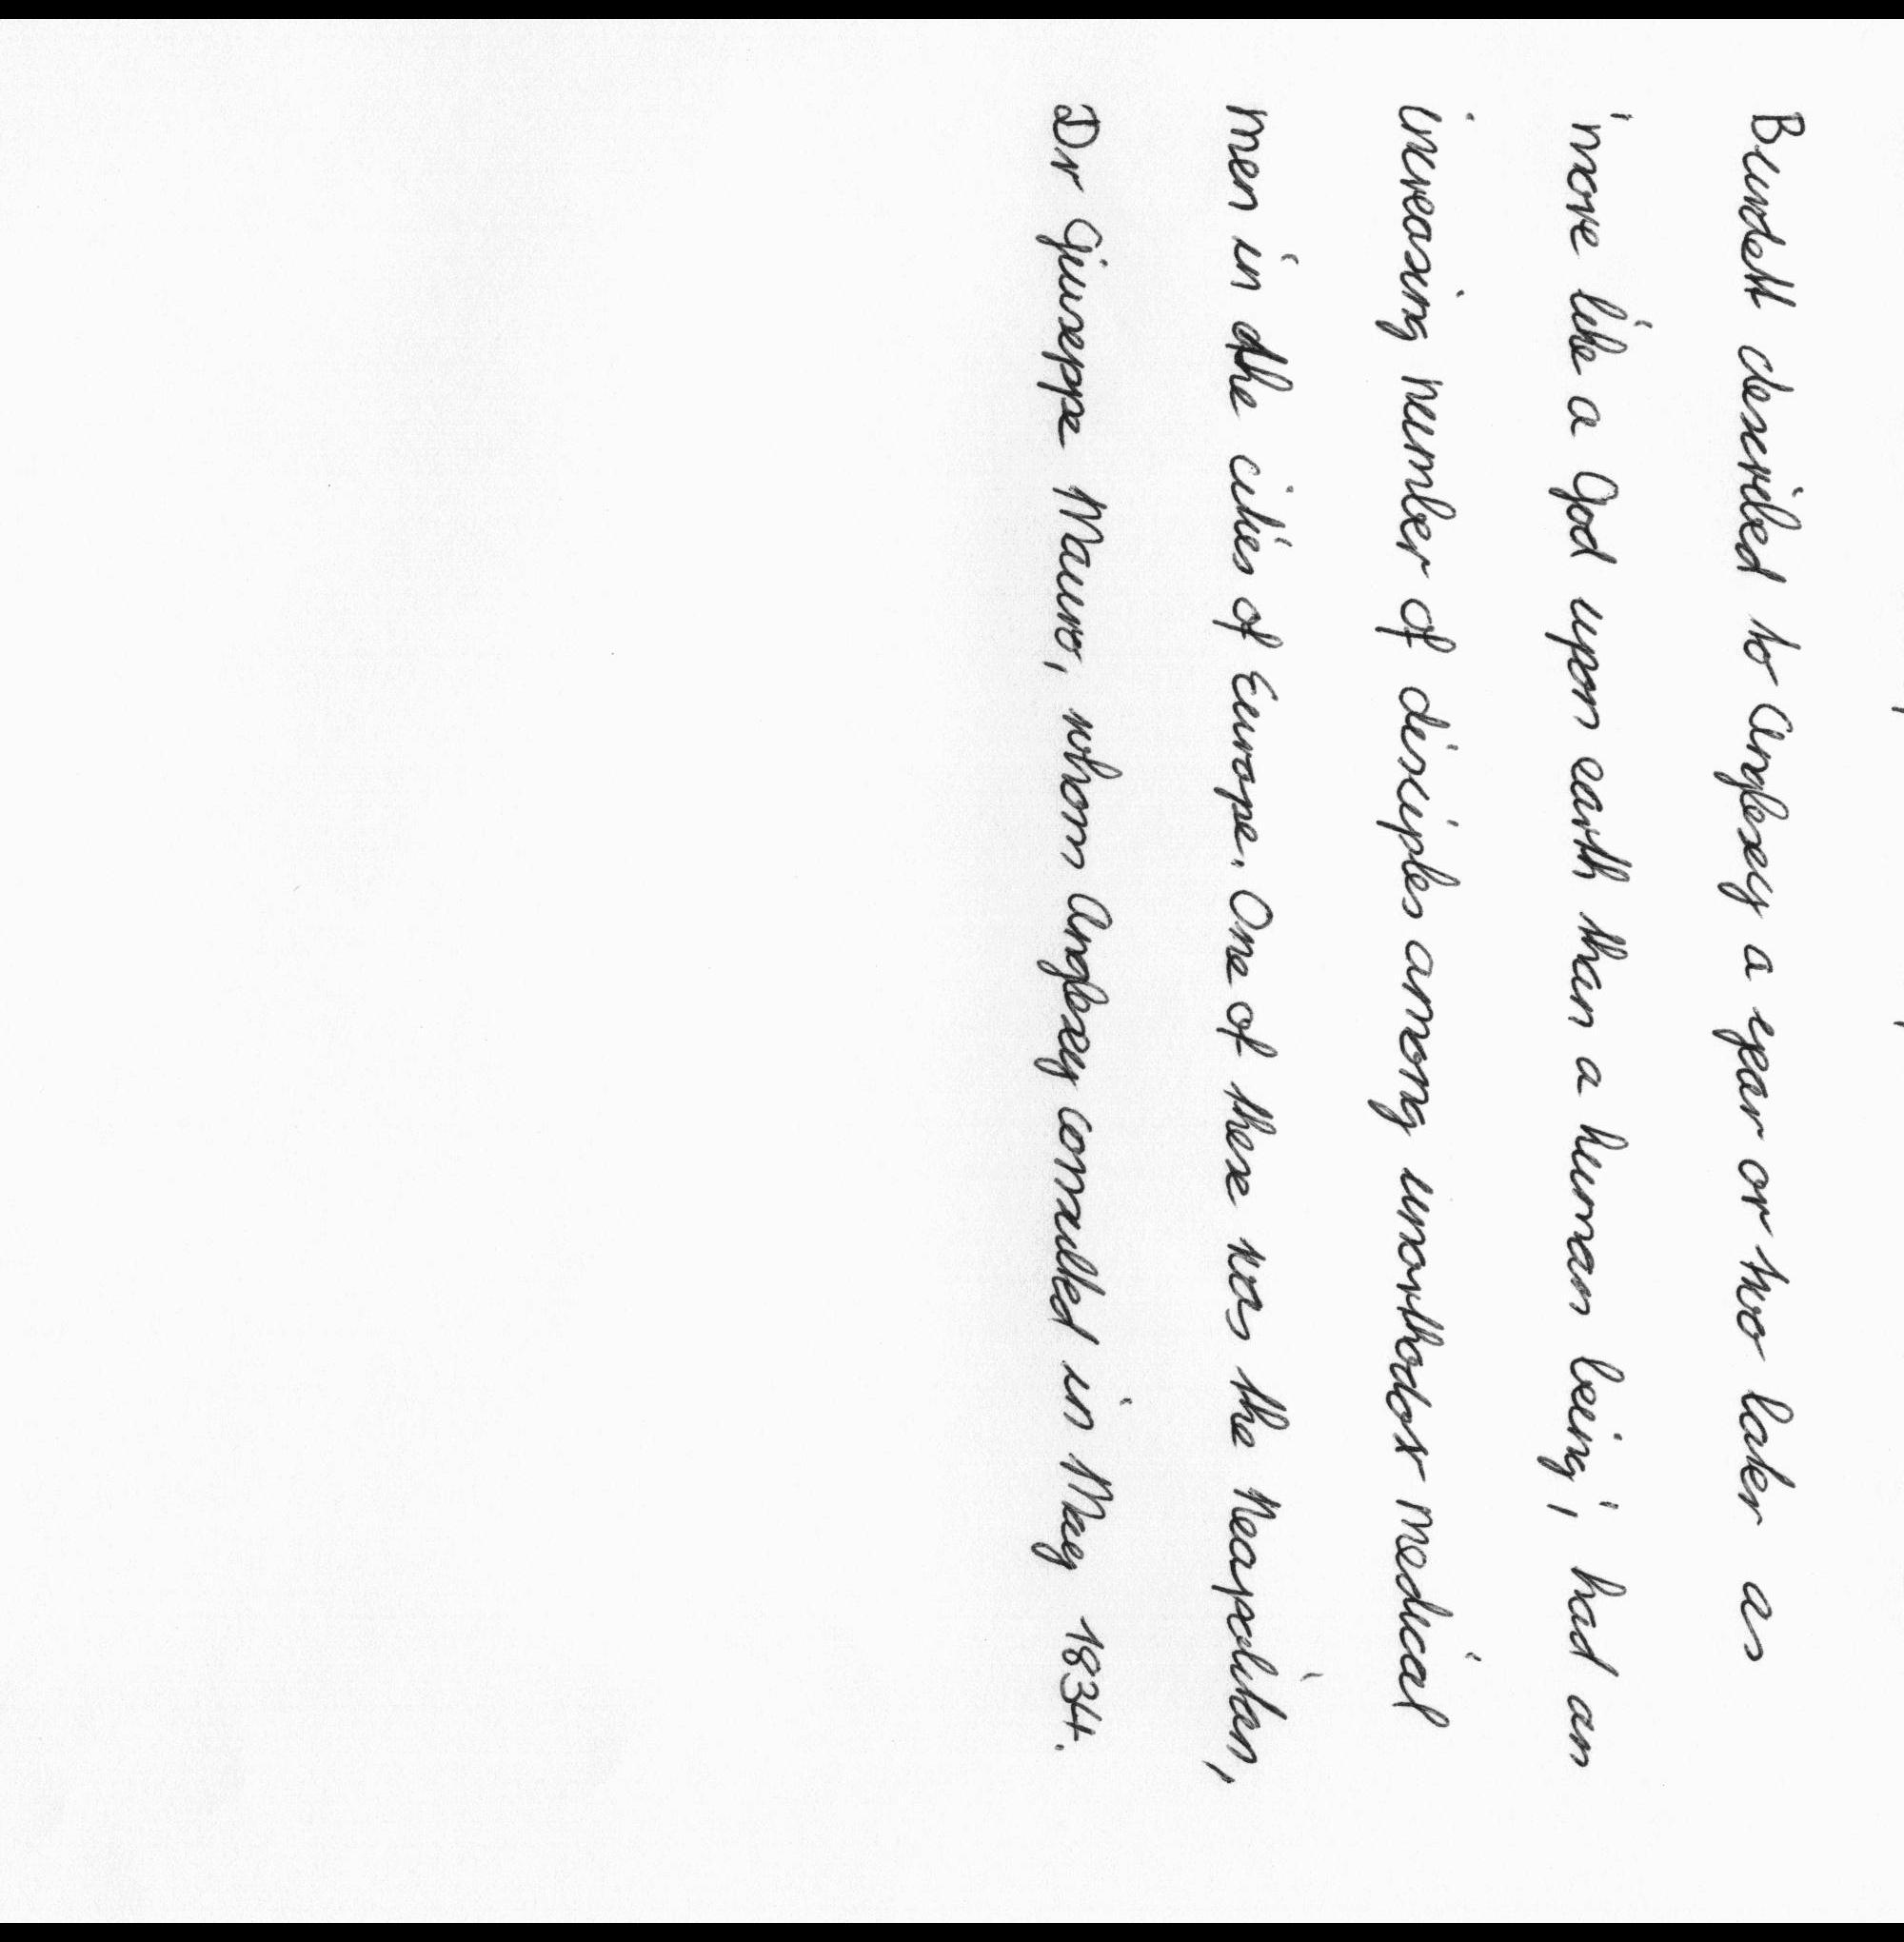 Burdett described to Anglesey a year or two later as
'more like a God upon earth than a human being', had an
increasing number of disciples among unorthodox medical
men in the cities of Europe. One of these was the Neapolitan,
Dr Giuseppe Mauro, whom Anglesey consulted in May 1834.